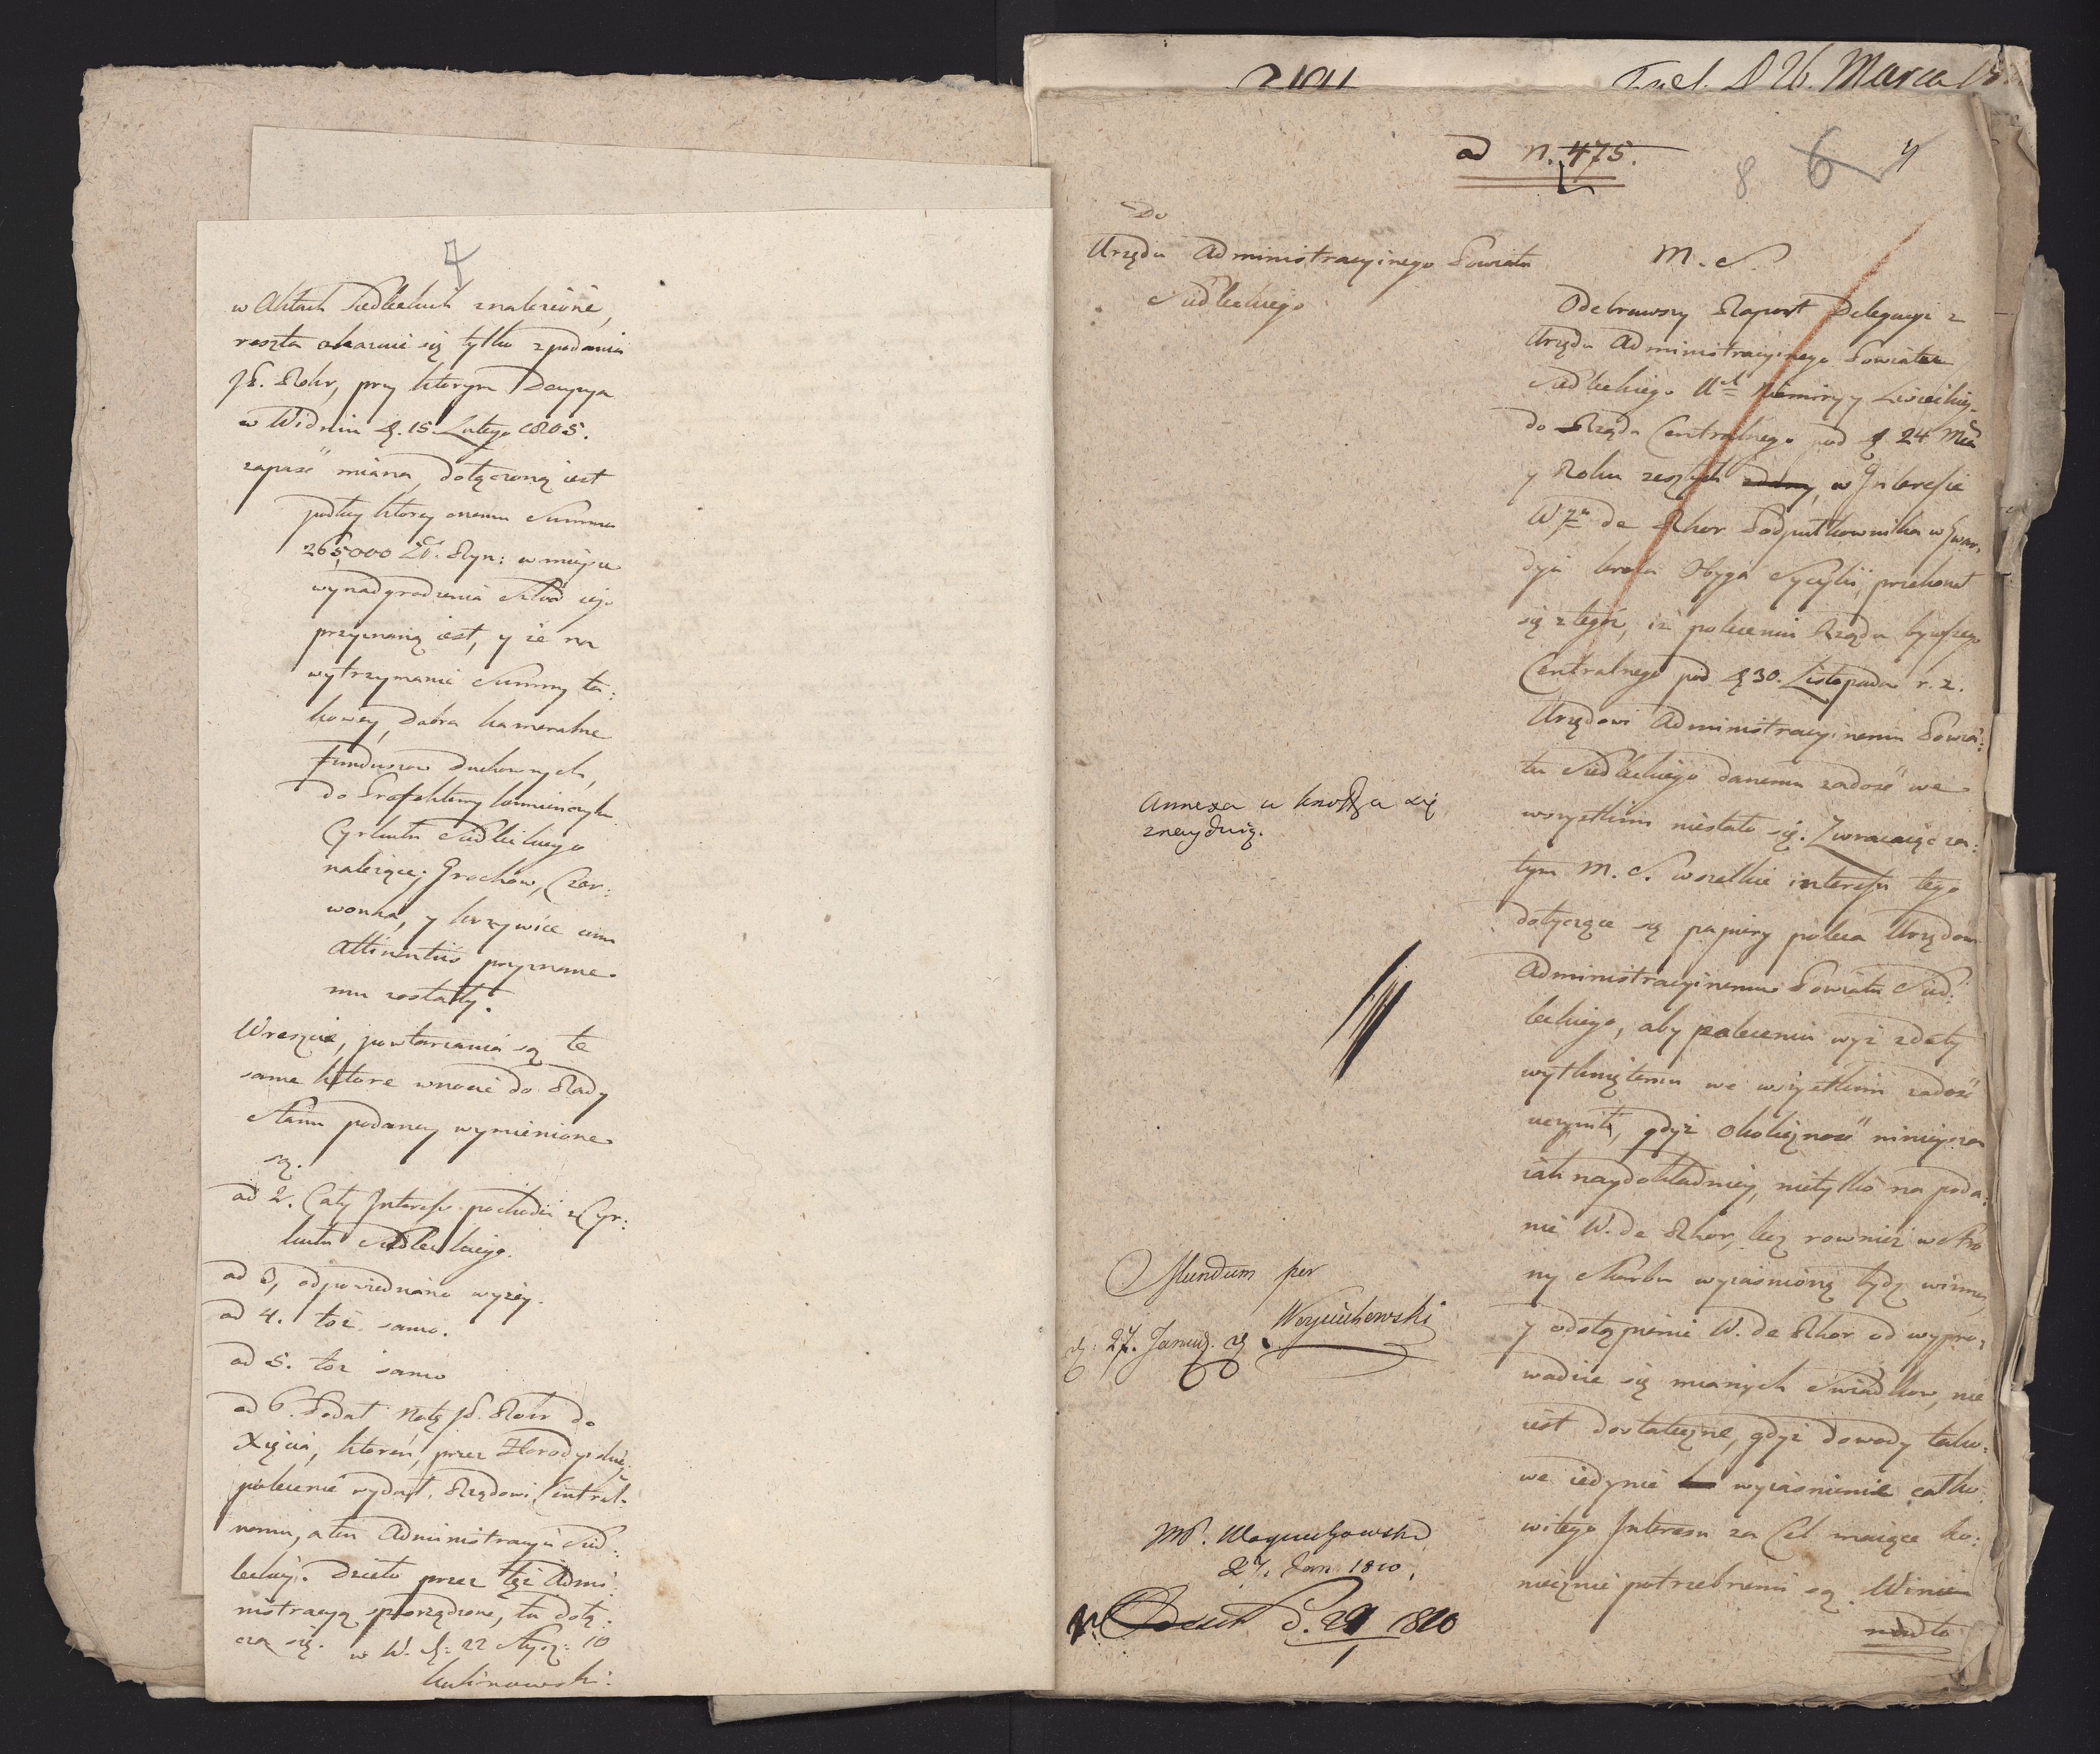 4
w Aktach Siedleckich znalezione,
reszta okazuie się tylko z podania
JP. Rohr, przy ktorym Decyzya
w Widniu d. 15. Lutego 1805.
zapaść miana, dołączoną iest
podług ktorey onemu Summa
265,000 Zł. Ryn: w mieysce
wynadgrodzenia Szkod iego
przyznaną iest, y że na
wytrzymanie Summy ta:
kowey, dobra kameralne
Funduszow Duchownych,
do Prefektury
Cyrkułu Siedleckiego
należące; Grochow, Czer:
wonka, y Krzywice cum
Attinentiis przyznane
mu zostały.
Wreszcie, powtarzania są te
same ktore wnocie do Rady
Stanu podaney wymienione
są.
ad 2. Cały Interess pochodzi z Cyr:
kułu Siedleckiego.
ad 3, odpowiedziano wyżey.
ad 4. toż samo.
ad 5. toż samo
ad 6. Podał Notę JP. Rohr do
Xięcia, ktoren, przez Horodyskie:
polecenie wydał, Rządowi Central
nemu, a ten Administracyi Sied:
leckiey. Dzieło przez tęż Admi:
nistracyą sporządzone, tu dołą:
cza się. w W. d: 22 Stycz: 10
Kalinowski.
2191
26. Marca
ad N. 475.
8 6
Do
Urzędu Administracyinego Powiatu
Siedleckiego
M. S.
Odebrawszy Raport Delegacyi z
Urzędu Administracyinego Powiatu
Siedleckiego
do Rządu Centralnego pod d 24 Mca
y Roku zeszłych w Interesie
de Rhor Podpułkownika w Gwar,
dyi krola Obyga Sycylii, przekonał
się z tegoż, iż poleceniu Rządu bywszego
Centralnego pod d 30. Listopada r. z.
Urzędowi Administracyinemu Powia:
tu Siedleckiego danemu zadość we
wszystkim niestało się. Zwracaiąc za:
tym M. S. wszelkie interesu tego
dotyczące się papiery poleca Urzędowi
Administracyinemu Powiatu Sied:
leckiego, aby poleceniu wyż z daty
wytkniętemu we wszystkim zadość
uczynił, gdyż okoliczność ninieysza
iak naydokładniey, nietylko na poda:
nie W. de Rhor, lecz rownież w Stro
ny Skarbu wyiaśnioną bydź winna,
y odstąpienie W. de Rhor od wypro,
wadzić się mianych Swiadkow, nie
iest dostateczne, gdyż dowody tako:
we iedynie wyiaśnienie całko:
witego Interesu za Cel maiące ko:
niecznie potrzebnemi są. Winien
nadto
Annexa u Kno... się
znayduią.
Mundum per
Woyciechowski
d. 27. Januar.
Woyciechowski
27. Jan 1810.
d. 29/1 1810